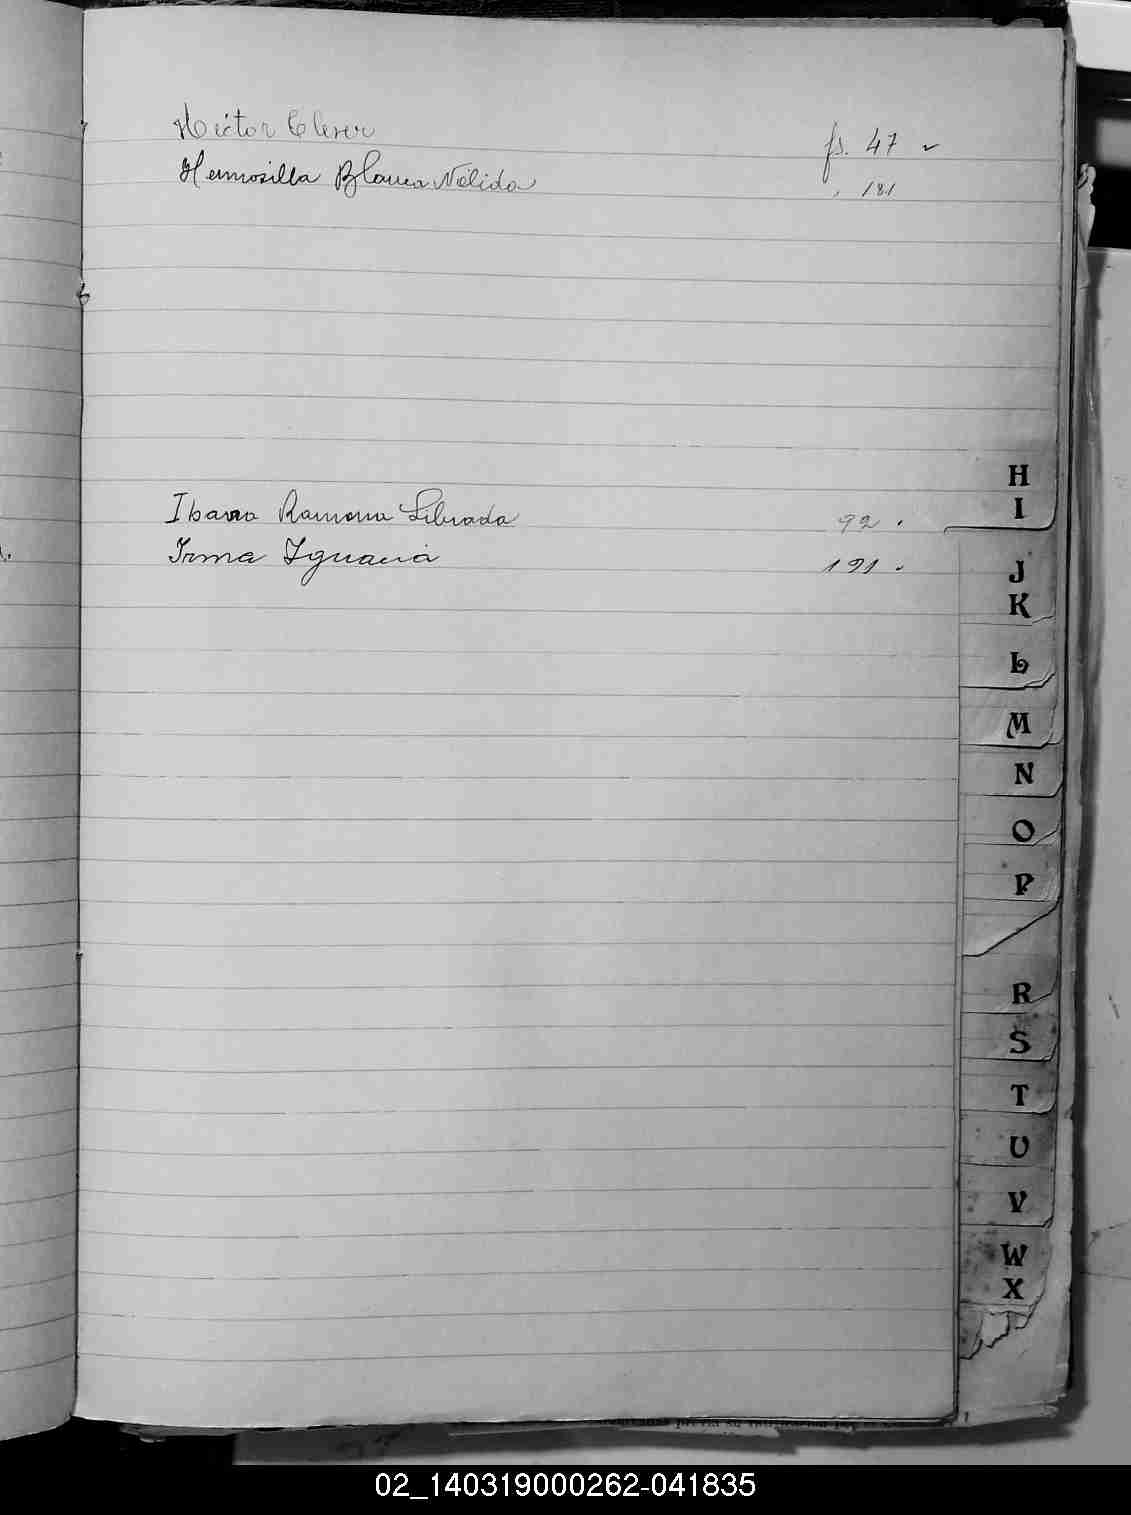 Héctor Clever fs. 47
Hermosilla Blanca Nélida " 181
Ibarra Ramona Librada 92 .
Irma Ignacia 191 .
H
I
J
K
L
M
N
O
P
R
S
T
U
V
W
X
02_140319000262-041835